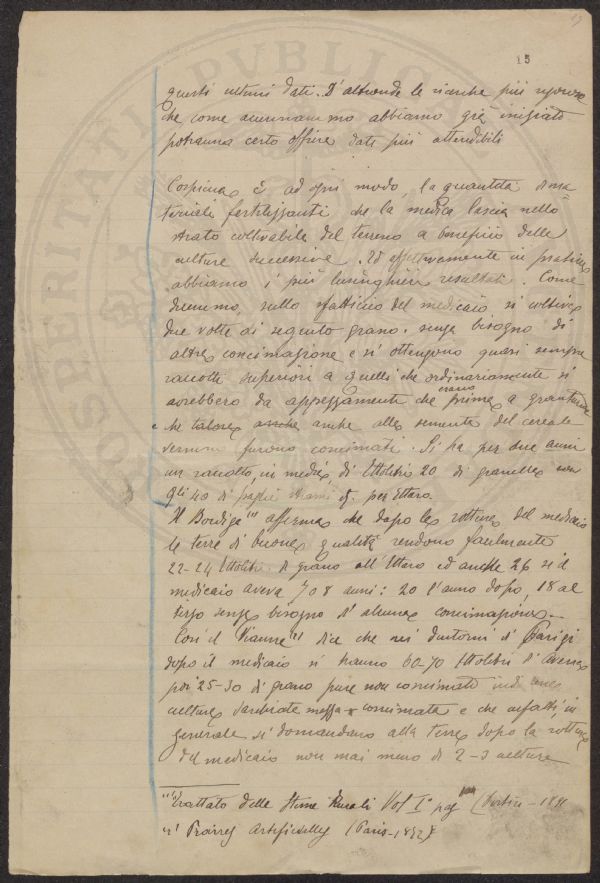 15
questi ultimi dati. D'altronde le ricerche più rigorose
che come accennammo abbiamo già iniziato
potranno certo offrire dati più attendibili
Cospicua è ad ogni modo, la quantità di ma
teriali fertilizzanti che la medica lascia nello
strato coltivabile del terreno a beneficio delle
culture successive. Ed effettivamente in pratica
abbiamo i più lusinghieri resultati. Come
dicemmo, sullo sfatticcio del medicaio si coltiva
due volte di seguito grano, senza bisogno di
altra concimazione e si ottengono quasi sempre
raccolti superiori a quelli che ordinariamente si
avrebbero da appezzamenti che erano prima a granturco
e che talora anche anche alla sementa del cereale
vernino furono concimati. Si ha per due anni
un raccolto, in media, di Ettolitri 20 di granella con
gli 40 di paglie strami q. per Ettaro.
Il Bordiga (1) afferma che dopo la rottura del medicaio
le terre di buona qualità rendono facilmente
22-24 Ettolitri di grano all'Ettaro ed anche 26 se il
medicaio aveva 7 o 8 anni: 20 l'anno dopo, 18 al
terzo senza bisogno d'alcuna concimazione.-
Così il dice che nei dintorni di Parigi
dopo il medicaio si hanno 60-70 Ettolitri d'avena
poi 25-30 di grano pure non concimato indi
culture sarchiate concimate e che infatti, in
generale si domandano alla terra dopo la rottura
del medicaio non mai meno di 2-3 culture
(1) Trattato delle Stime Rurali Vol I° pag (Portici - 1891
(2) Artificielles (Paris - 1892)